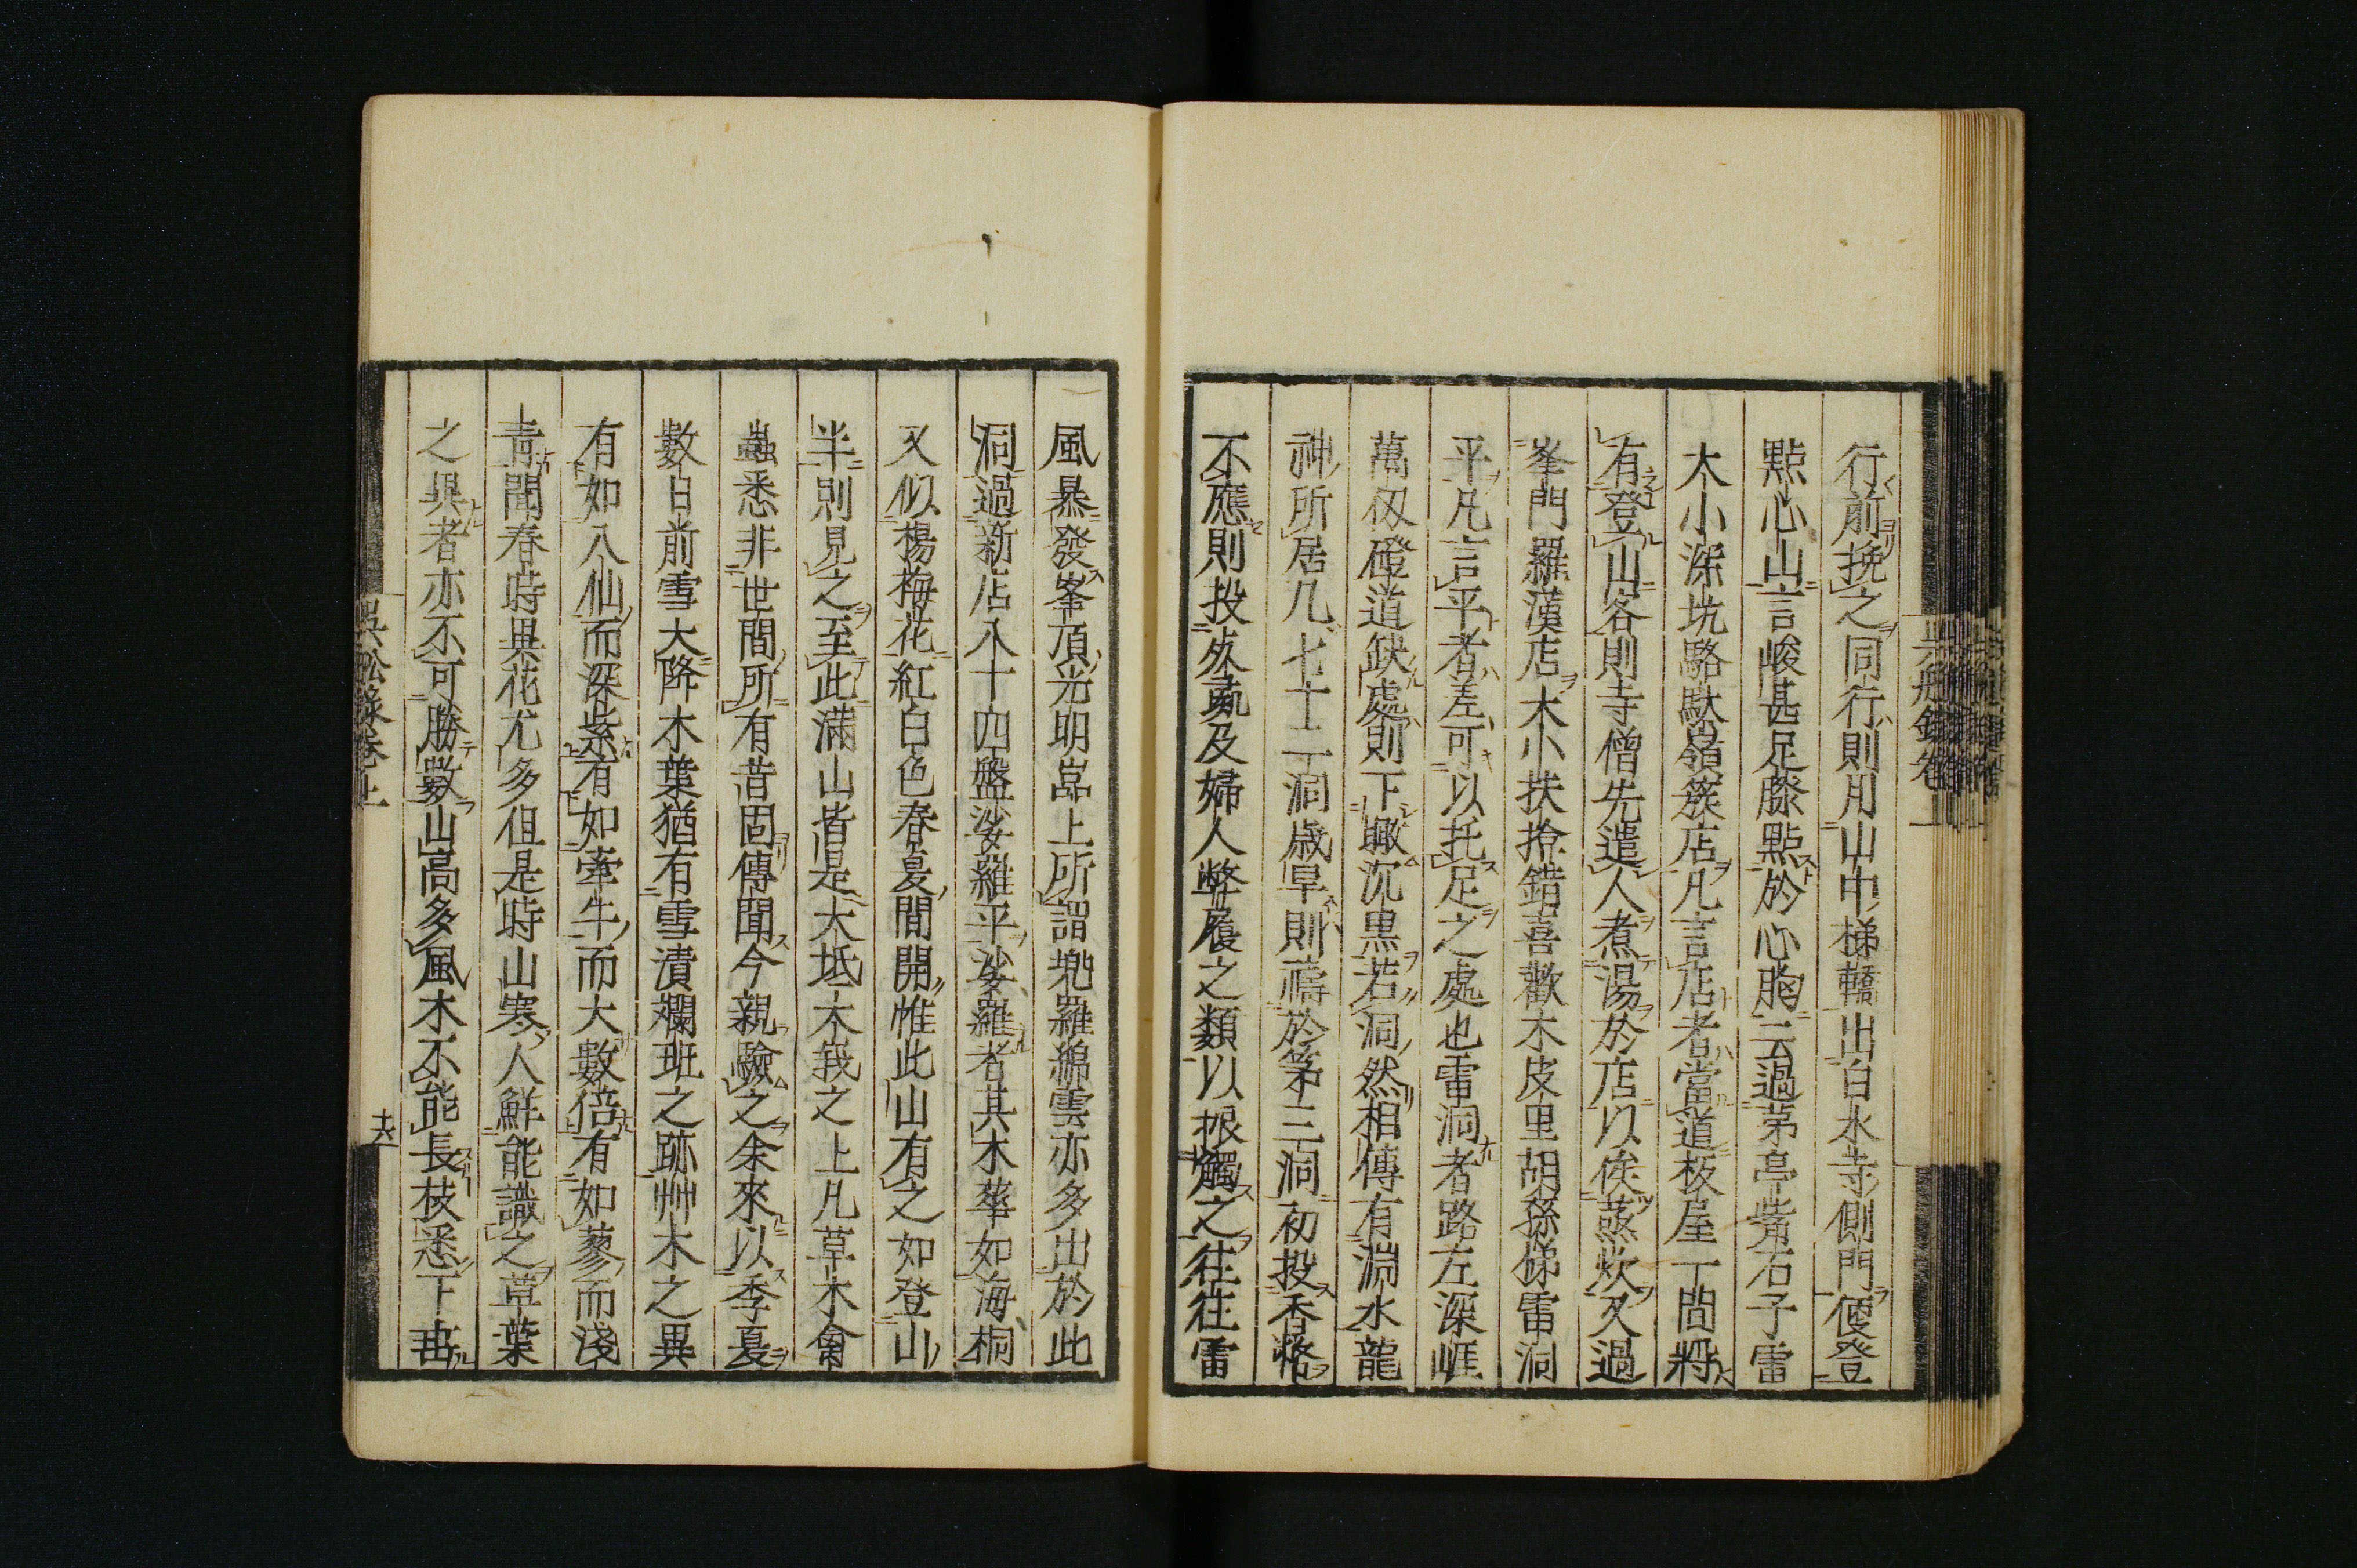 行前挽之同行則用山中梯轎出白水寺側門便登
點心山言峻甚足膝點於心胸云過茅亭觜石子雷
大小深坑駱駄嶺簇店凡言店者當道板屋一間將
有登山客則寺僧先遣人煮湯於店以俟蒸炊又過
峯門羅漢店大小扶捨錯喜歡木皮里胡孫梯雷洞
平凡言平者差可以托足之處也雷洞者路左深崕
萬仭磴道缺處則下瞰沉黒若洞然相傳有淵水龍
神所居凡七十二洞歳旱則禱於第三洞初投香幣
不應則投死彘及婦人弊履之類以振觸之往往雷
風暴發峯頂光明嵓上所謂兠羅綿雲亦多出於此
洞過新店八十四盤娑羅平娑羅者其木葉如海桐
又似楊梅花紅白色春夏間開惟此山有之如登山
半則見之至此滿山皆是大抵大峩之上凡草木禽
蟲悉非世間所有昔固傳聞今親驗之余來以季夏
數日前雪大降木葉猶有雪漬斕斑之跡艸木之異
有如八仙而深紫有如牽牛而大數倍有如蓼而淺
青聞春時異花尤多但是時山寒人鮮能識之草葉
之異者亦不可勝數山高多風木不能長枝悉下垂
吳舩錄卷上
十六
吳舩錄卷上